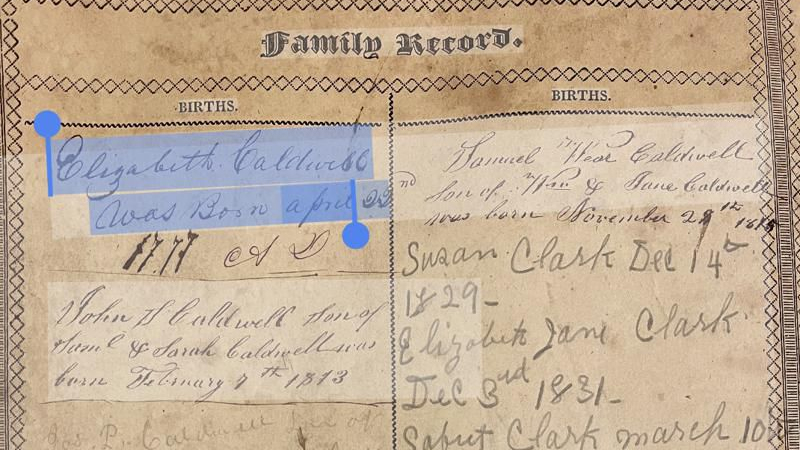 Family Record.
BIRTHS.
Elizabeth Caldwell
was Born april 22nd
1777 A D
John S Caldwell Son of
Saml & Sarah Caldwell was
born February 7th 1813
Caldwell
BIRTHS.
Samuel Wear Caldwell
Son of Wm & Jane Caldwell
was born November 28th
Susan Clark Dec 14th
1829-
Elizabeth Jane Clark
Dec 3rd 1831-
Clark march 10th